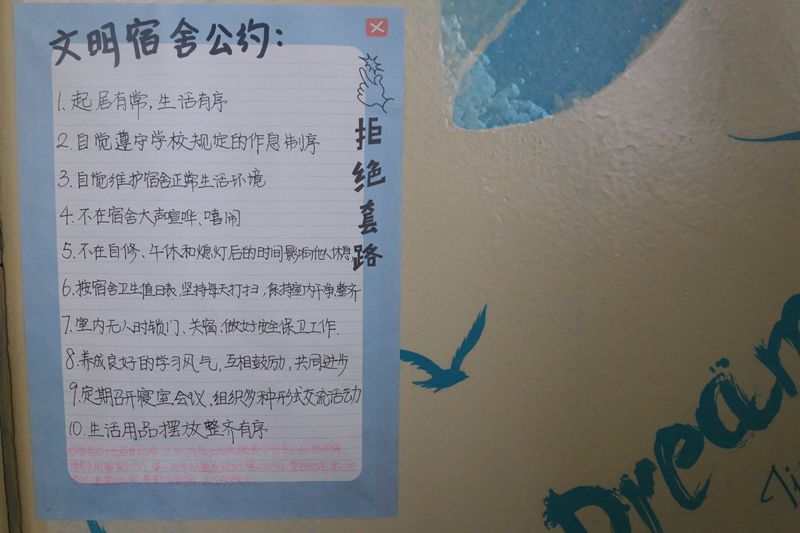 文明宿舍公约:
拒绝套路
1.起居有常,生活有序
2.自觉遵守学校规定的作息制序
3.自觉维护宿舍正常生活环境
4.不在宿舍大声喧哗、嘻闹
5.不在自修、午休和熄灯后的时间影响他人休息
6.按宿舍卫生值日表,坚持每天打扫,保持室内干净整齐
7.室内无人时锁门、关窗、做好安全保卫工作.
8.养成良好的学习风气,互相鼓励,共同进步
9.定期召开寝室会议,组织多种形式交流活动
10.生活用品摆放整齐有序
Dream